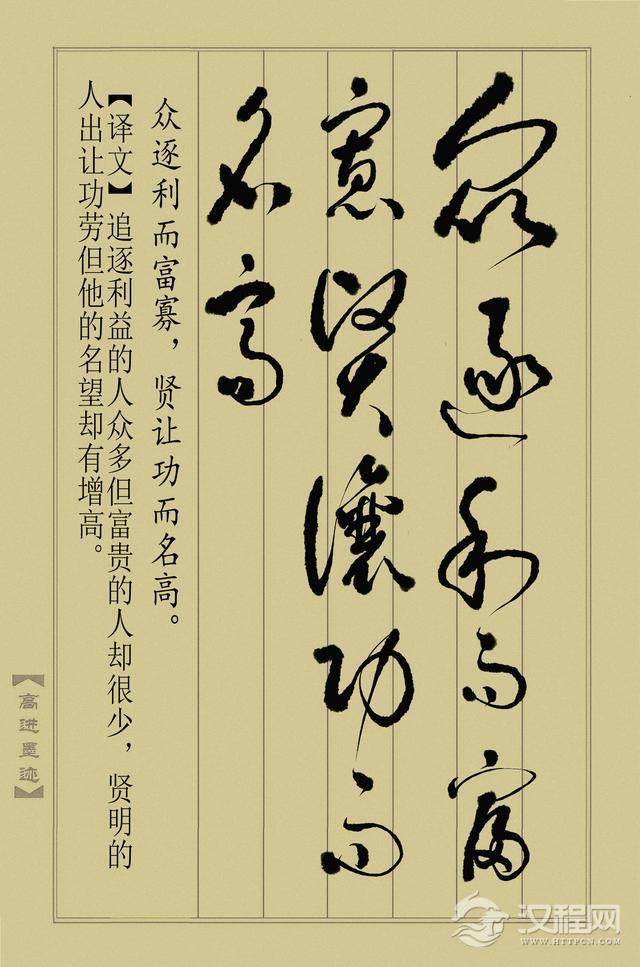 众逐利而富
寡贤让功而
名高
众逐利而富寡，贤让功而名高。
【译文】追逐利益的人众多但富贵的人却很少，贤明的
人出让功劳但他的名望却有增高。
【高进墨迹】
汉程网
WWW.HTTPCN.COM